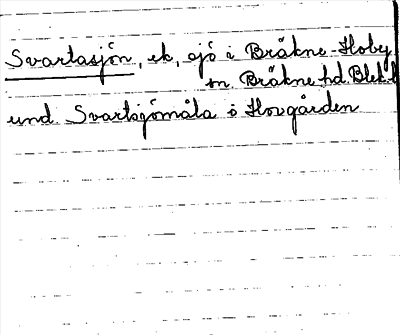 Svartasjön, ek, sjö i Bräkne-Hoby
sn. Bräkne hd. Blek. l
und. Svartsjömåla o Hovgården